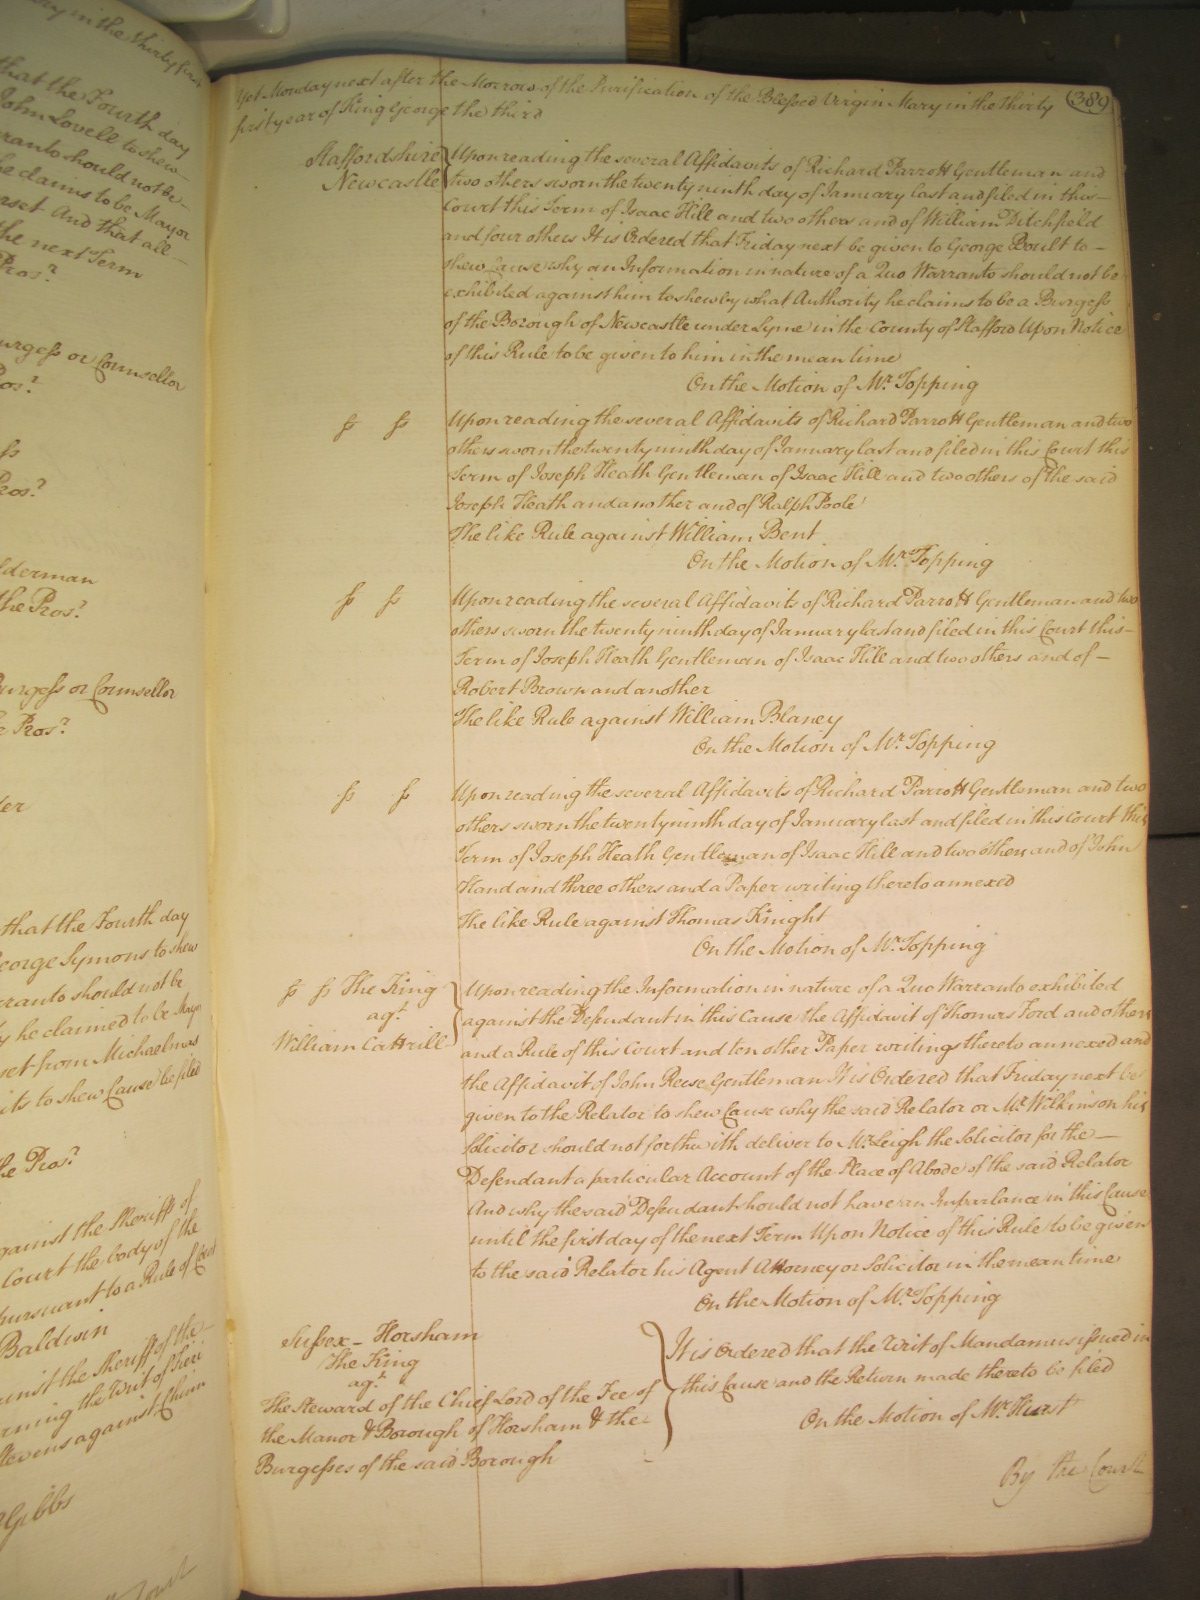 ry in the thirty first
that the Fourth day
John Lovell to shew
rranto should not be
he claims to be Mayor
rset And that all
the next Term
Pros?
urgess or Counsellor
ros?
ss
Pros?
lderman
the Pros?
Burgess or Counsellor
e Pros?
der
that the Fourth day
George Symons to shew
rranto should not be
y he claimed to be Mayor
set from Michaelmas
its to shew Cause be filed
the Pros?
gainst the Sheriff of
Court the body of the
pursuant to a Rule of Court
Baldwin
ainst the Sheriff of the
rning the Writ of Fieri
tevens against Chum
Gibbs
Court
Yet Monday next after the Morrow of the Purification of the Blessed Virgin Mary in the thirty 389
first year of King George the third
Staffordshire Upon reading the several Affidavits of Richard Parrott Gentleman and
Newcastle two others sworn the twenty ninth day of January last and filed in this
Court this Term of Isaac Hill and two others and of William Ditchfield
and four others It is Ordered that Friday next be given to George Boult to
shew Cause why an Information in nature of a Quo Warranto should not be
exhibited against him to shew by what Authority he claims to be a Burgess
of the Borough of Newcastle under Lyme in the County of Stafford Upon Notice
of this Rule to be given to him in the mean time
On the Motion of Mr. Topping
ss ss Upon reading the several Affidavits of Richard Parrott Gentleman and two
others sworn the twenty ninth day of January last and filed in this Court this
Term of Joseph Heath Gentleman of Isaac Hill and two others of the said
Joseph Heath and another and of Ralph Poole
The like Rule against William Bent
On the Motion of Mr. Topping
ss ss Upon reading the several Affidavits of Richard Parrott Gentleman and two
others sworn the twenty ninth day of January last and filed in this Court this
Term of Joseph Heath Gentleman of Isaac Hill and two others and of
Robert Brown and another
The like Rule against William Blaney
On the Motion of Mr. Topping
ss ss Upon reading the several Affidavits of Richard Parrott Gentleman and two
others sworn the twenty ninth day of January last and filed in this Court this
Term of Joseph Heath Gentleman of Isaac Hill and two others and of John
Hand and three others and a Paper writing thereto annexed
The like Rule against Thomas Knight
On the Motion of Mr. Topping
ss ss The King Upon reading the Information in nature of a Quo Warranto exhibited
agt. against the Defendant in this Cause the Affidavit of Thomas Ford and others
William Cattrill and a Rule of this Court and ten other Paper writings thereto annexed and
the Affidavit of John Reese Gentleman It is Ordered that Friday next be
given to the Relator to shew Cause why the said Relator or Mr. Wilkinson his
Solicitor should not forthwith deliver to Mr. Leigh the Solicitor for the
Defendant a particular Account of the Place of Abode of the said Relator
And why the said Defendant should not have an Imparlance in this Cause
until the first day of the next Term Upon Notice of this Rule to be given
to the said Relator his Agent Attorney or Solicitor in the mean time
On the Motion of Mr. Topping
Sussex - Horsham
The King
agt.
The Steward of the Chief Lord of the Fee of
the Manor & Borough of Horsham & the
Burgesses of the said Borough
It is Ordered that the Writ of Mandamus issued in
this Cause and the Return made thereto be filed
On the Motion of Mr. Hurst
By the Court